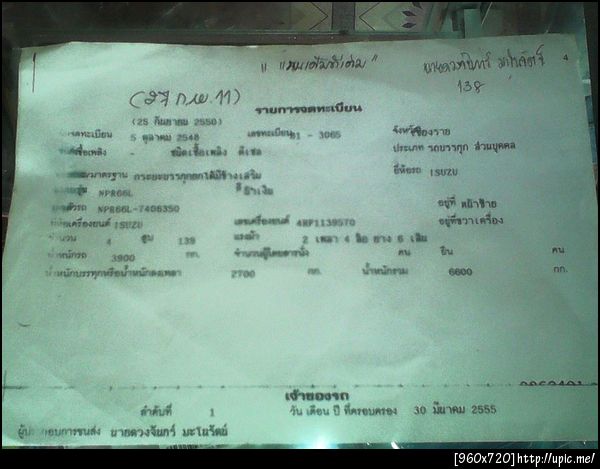 " แทนเล่มเดิม "
4
138
(27 ก.พ. 11)
รายการจดทะเบียน
(25 กันยายน 2550)
จดทะเบียน 5 ตุลาคม 2548 เลขทะเบียน 81 - 3065 จังหวัด เชียงราย
เชื้อเพลิง - ชนิดเชื้อเพลิง ดีเซล ประเภท รถบรรทุก ส่วนบุคคล
มาตรฐาน กระบะบรรทุกยกได้มีข้างเสริม ยี่ห้อรถ ISUZU
รุ่น NPR66L สี น้ำเงิน
ตัวรถ NPR66L-7406350 อยู่ที่ หน้าซ้าย
ยี่ห้อเครื่องยนต์ ISUZU เลขเครื่องยนต์ 4HF1139570 อยู่ที่ ขวาเครื่อง
จำนวน 4 สูบ 139 แรงม้า 2 เพลา 4 ล้อ ยาง 6 เส้น
น้ำหนักรถ 3900 กก. จำนวนผู้โดยสาร นั่ง คน ยืน คน
น้ำหนักบรรทุกหรือน้ำหนักลงเพลา 2700 กก. น้ำหนักรวม 6600 กก.
เจ้าของรถ
ลำดับที่ 1 วัน เดือน ปี ที่ครอบครอง 30 มีนาคม 2555
ผู้ประกอบการขนส่ง นายดวงจันทร์ มะโนวัตย์
[960x720]http://upic.me/